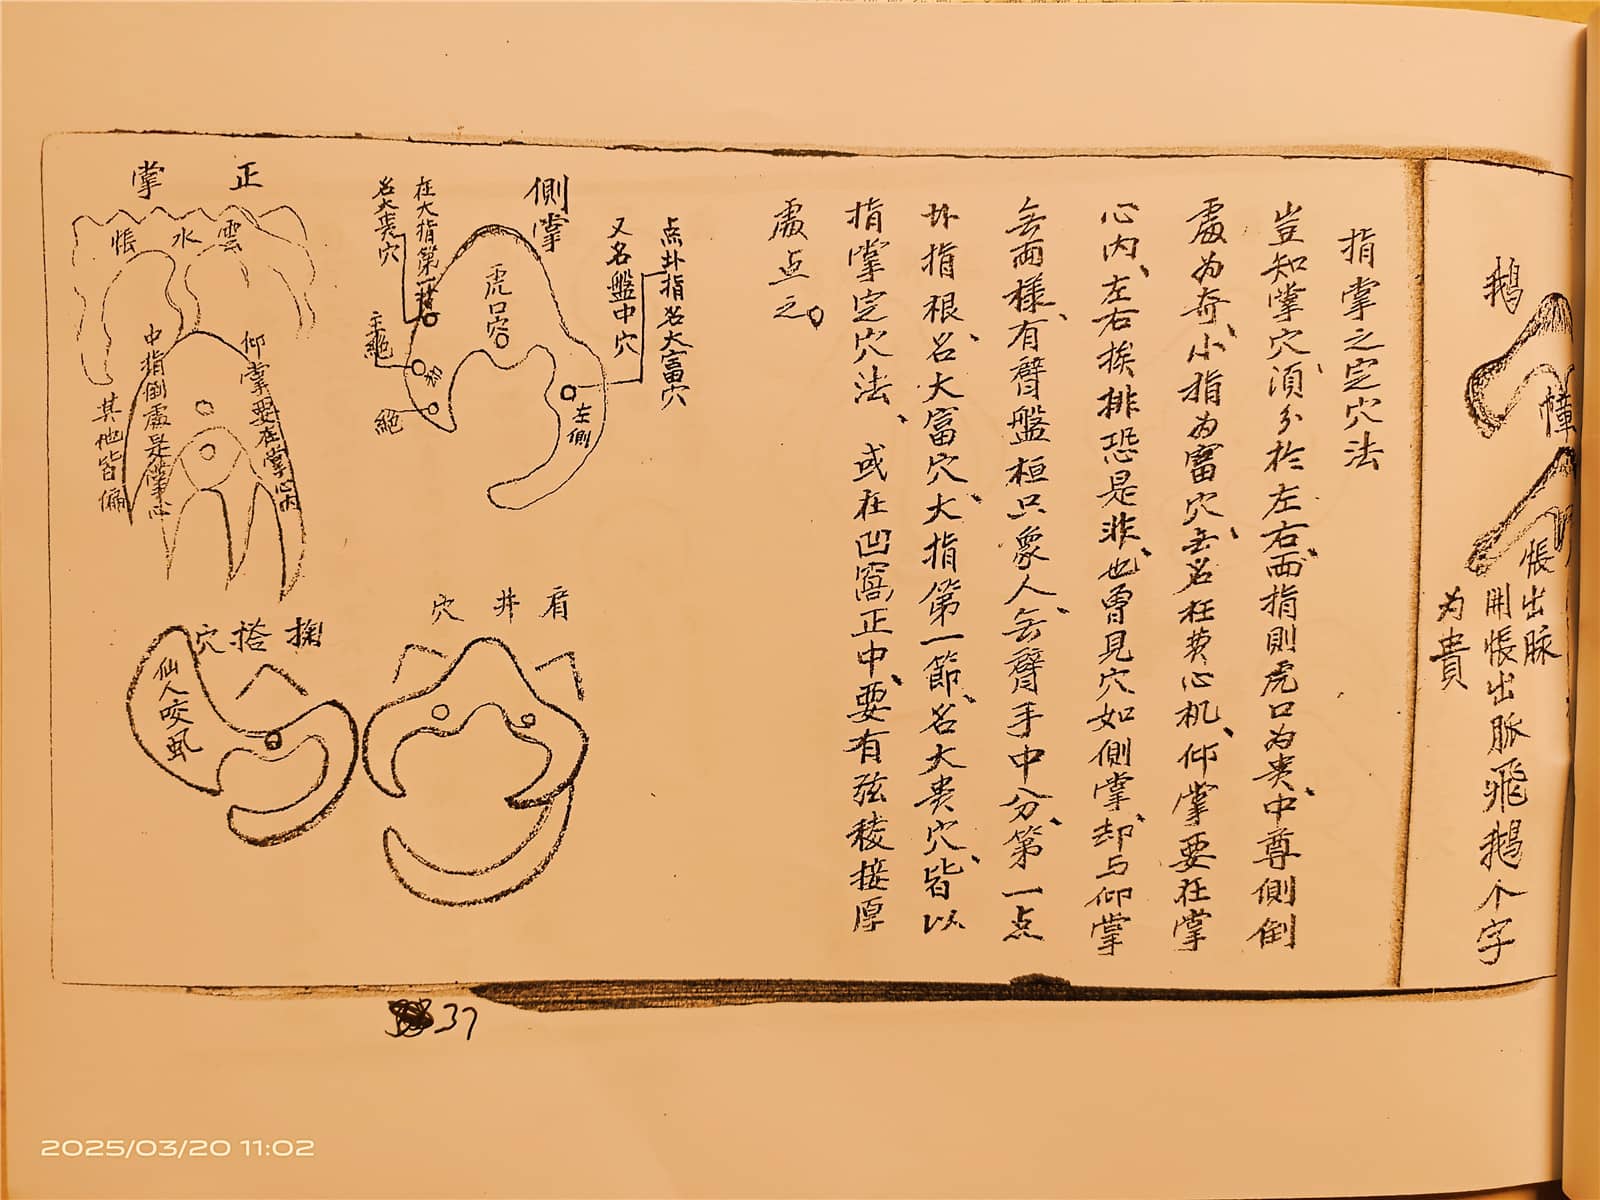 鵝
幛
帳出脉
開帳出脈飛鵝个字
为貴
指掌之定穴法
豈知掌穴、須分於左右、两指則虎口为贵、中尊側倒
處为奇、小指为富穴、無名枉费心机、仰掌要在掌
心内、左右挨排恐是非也、曾見穴如側掌、却与仰掌
無两様、有臂盤桓只象人、無臂手中分、第一点
卦指根、名大富穴、大指第一節、名大贵穴、皆以
指掌定穴法、或在凹窩正中、要有弦稜接厚
處点之。
点卦指名大富穴
又名盤中穴
側掌
虎口穴
左側
在大指第一節
名大贵穴
絕
正掌
雲水帳
仰掌要在掌心内
中指倒處是掌心
其他皆偏
肩井穴
掬搭穴
仙人咬虱
37
2025/03/20 11:02